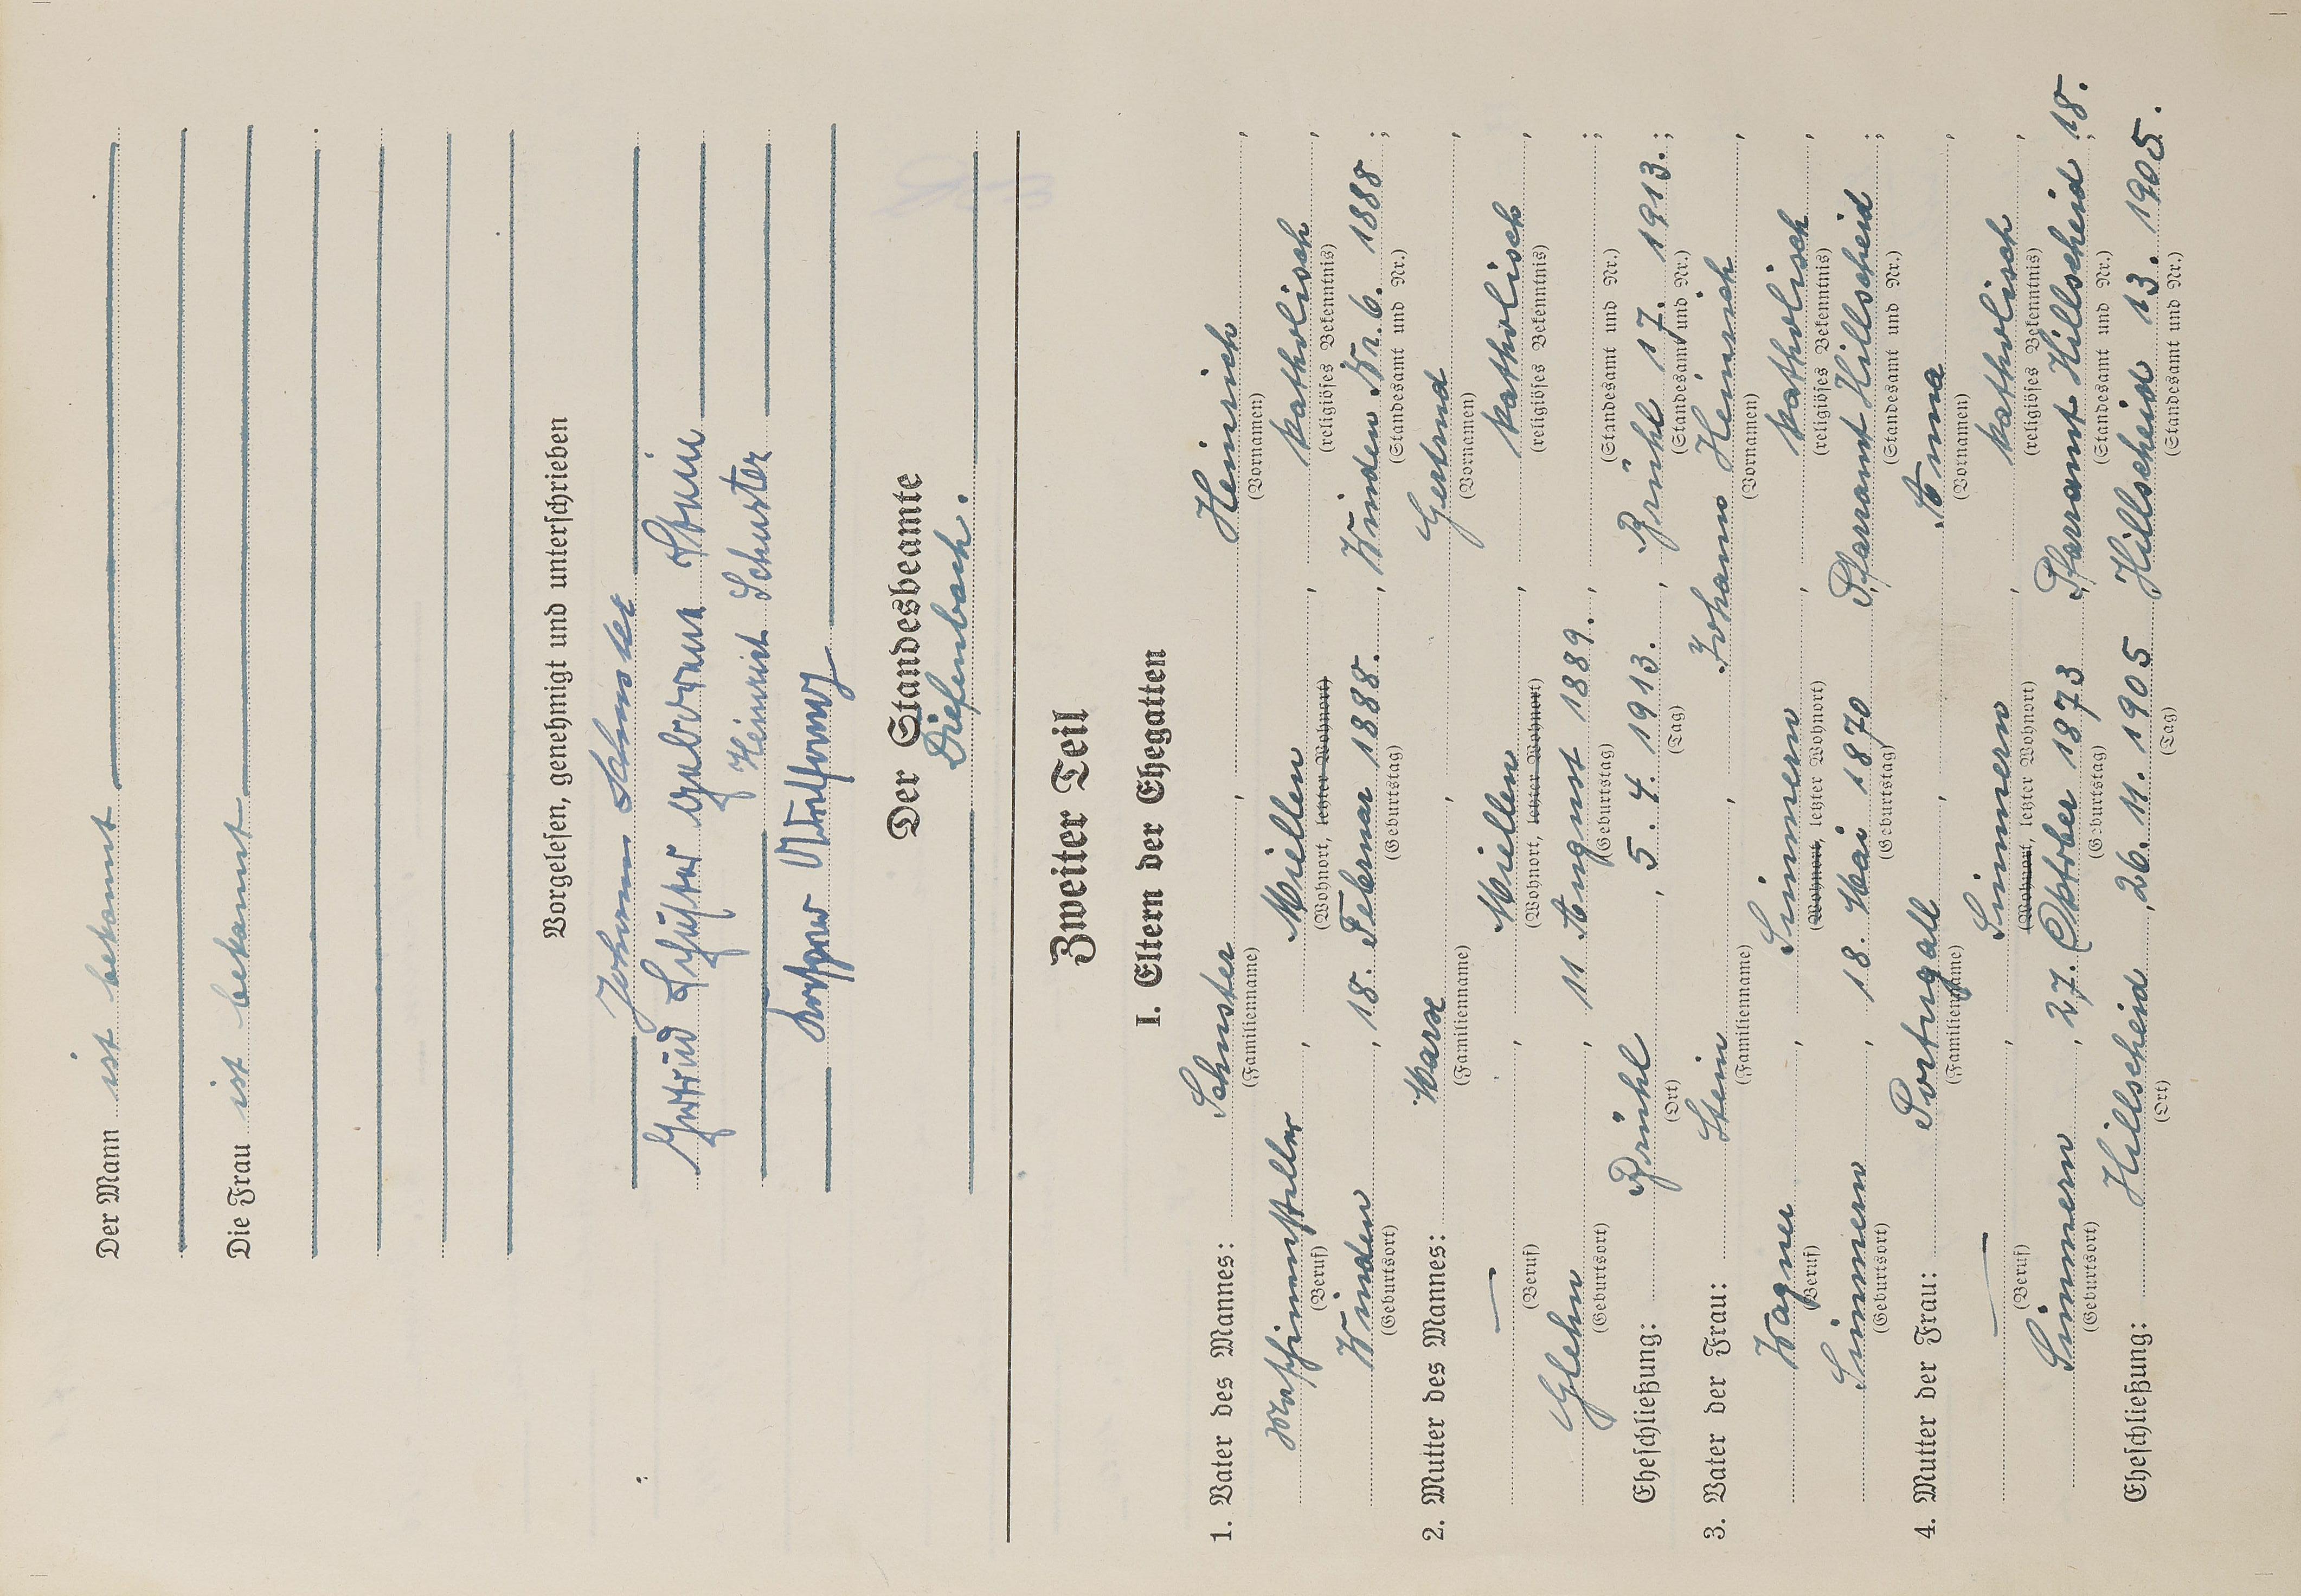 Der Mann ist bekannt
Die Frau ist bekannt
Vorgelesen, genehmigt und unterschrieben
Johann Schuster
Gertrud Schuster geborene Stein
Heinrich Schuster
Der Standesbeamte
Diefenbach.
Zweiter Teil
I. Eltern der Ehegatten
1. Vater des Mannes: Schuster, Heinrich,
(Familienname) (Vornamen)
, Miellen, katholisch,
(Beruf) (Wohnort, letzter Wohnort) (religiöses Bekenntnis)
Winden, 18. Februar 1888., Winden Nr. 6. 1888;
(Geburtsort) (Geburtstag) (Standesamt und Nr.)
2. Mutter des Mannes: Marx, Gertrud,
(Familienname) (Vornamen)
—, Miellen, katholisch,
(Beruf) (Wohnort, letzter Wohnort) (religiöses Bekenntnis)
Glehn, 11. August 1889., ;
(Geburtsort) (Geburtstag) (Standesamt und Nr.)
Eheschließung: Brühl, 5. 4. 1913., Brühl 17. 1913.;
(Ort) (Tag) (Standesamt und Nr.)
3. Vater der Frau: Stein, Johann Heinrich,
(Familienname) (Vornamen)
Wagner, Simmern, katholisch,
(Beruf) (Wohnort, letzter Wohnort) (religiöses Bekenntnis)
Simmern, 18. Mai 1870 Pfarramt Hillscheid;
(Geburtsort) (Geburtstag) (Standesamt und Nr.)
4. Mutter der Frau: Portugall, Anna,
(Familienname) (Vornamen)
—, Simmern, katholisch,
(Beruf) (Wohnort, letzter Wohnort) (religiöses Bekenntnis)
Simmern, 27. Oktober 1873, Pfarramt Hillscheid 18.;
(Geburtsort) (Geburtstag) (Standesamt und Nr.)
Eheschließung: Hillscheid, 26. 11. 1905 Hillscheid 13. 1905.
(Ort) (Tag) (Standesamt und Nr.)